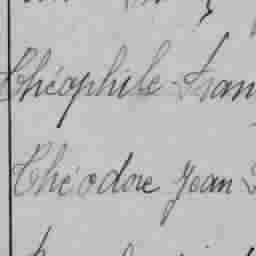 Théophile Fran
Théodore Jean